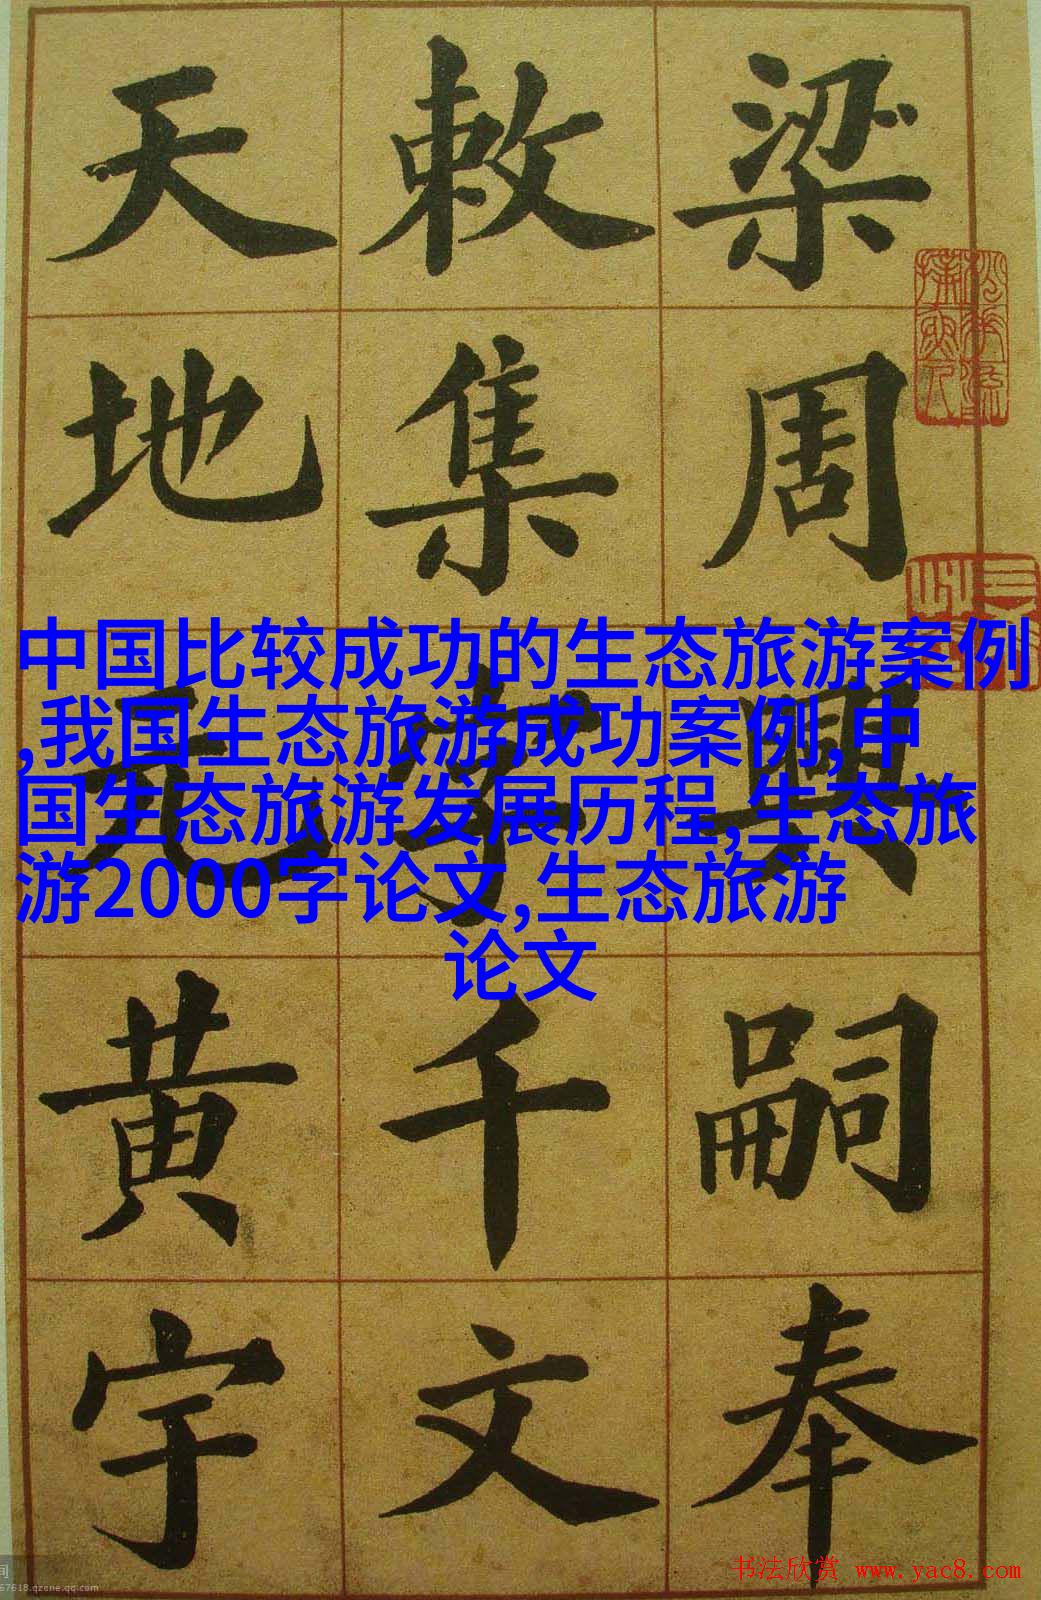 梁周興嗣奉
敕集字千文
天地元黄宇
中国比较成功的生态旅游案例
,我国生态旅游成功案例,中
国生态旅游发展历程,生态旅
游2000字论文,生态旅游
论文
书法欣赏 www.yac8.com
67618.qzone.qq.com